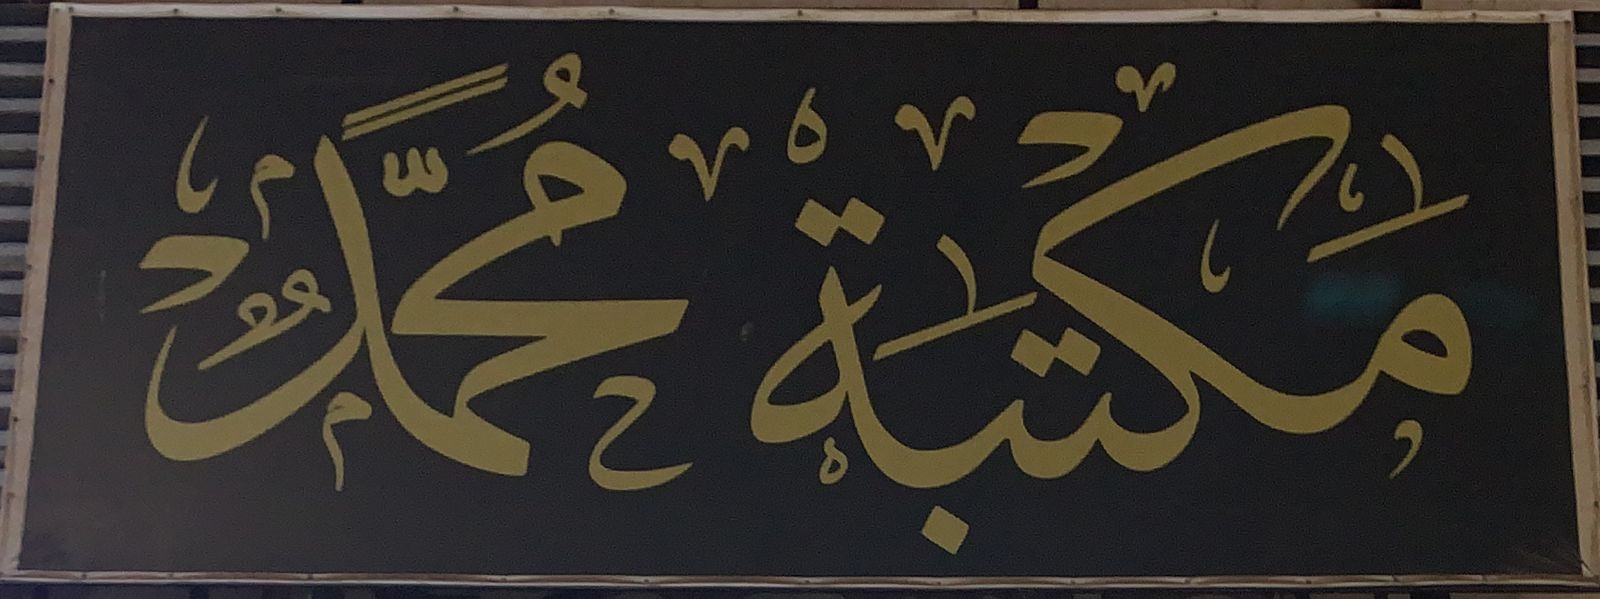 مَكتَبَة مُحَمَّدٌ